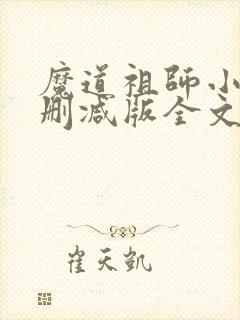 魔道祖師小
删减版全文
崔天凯